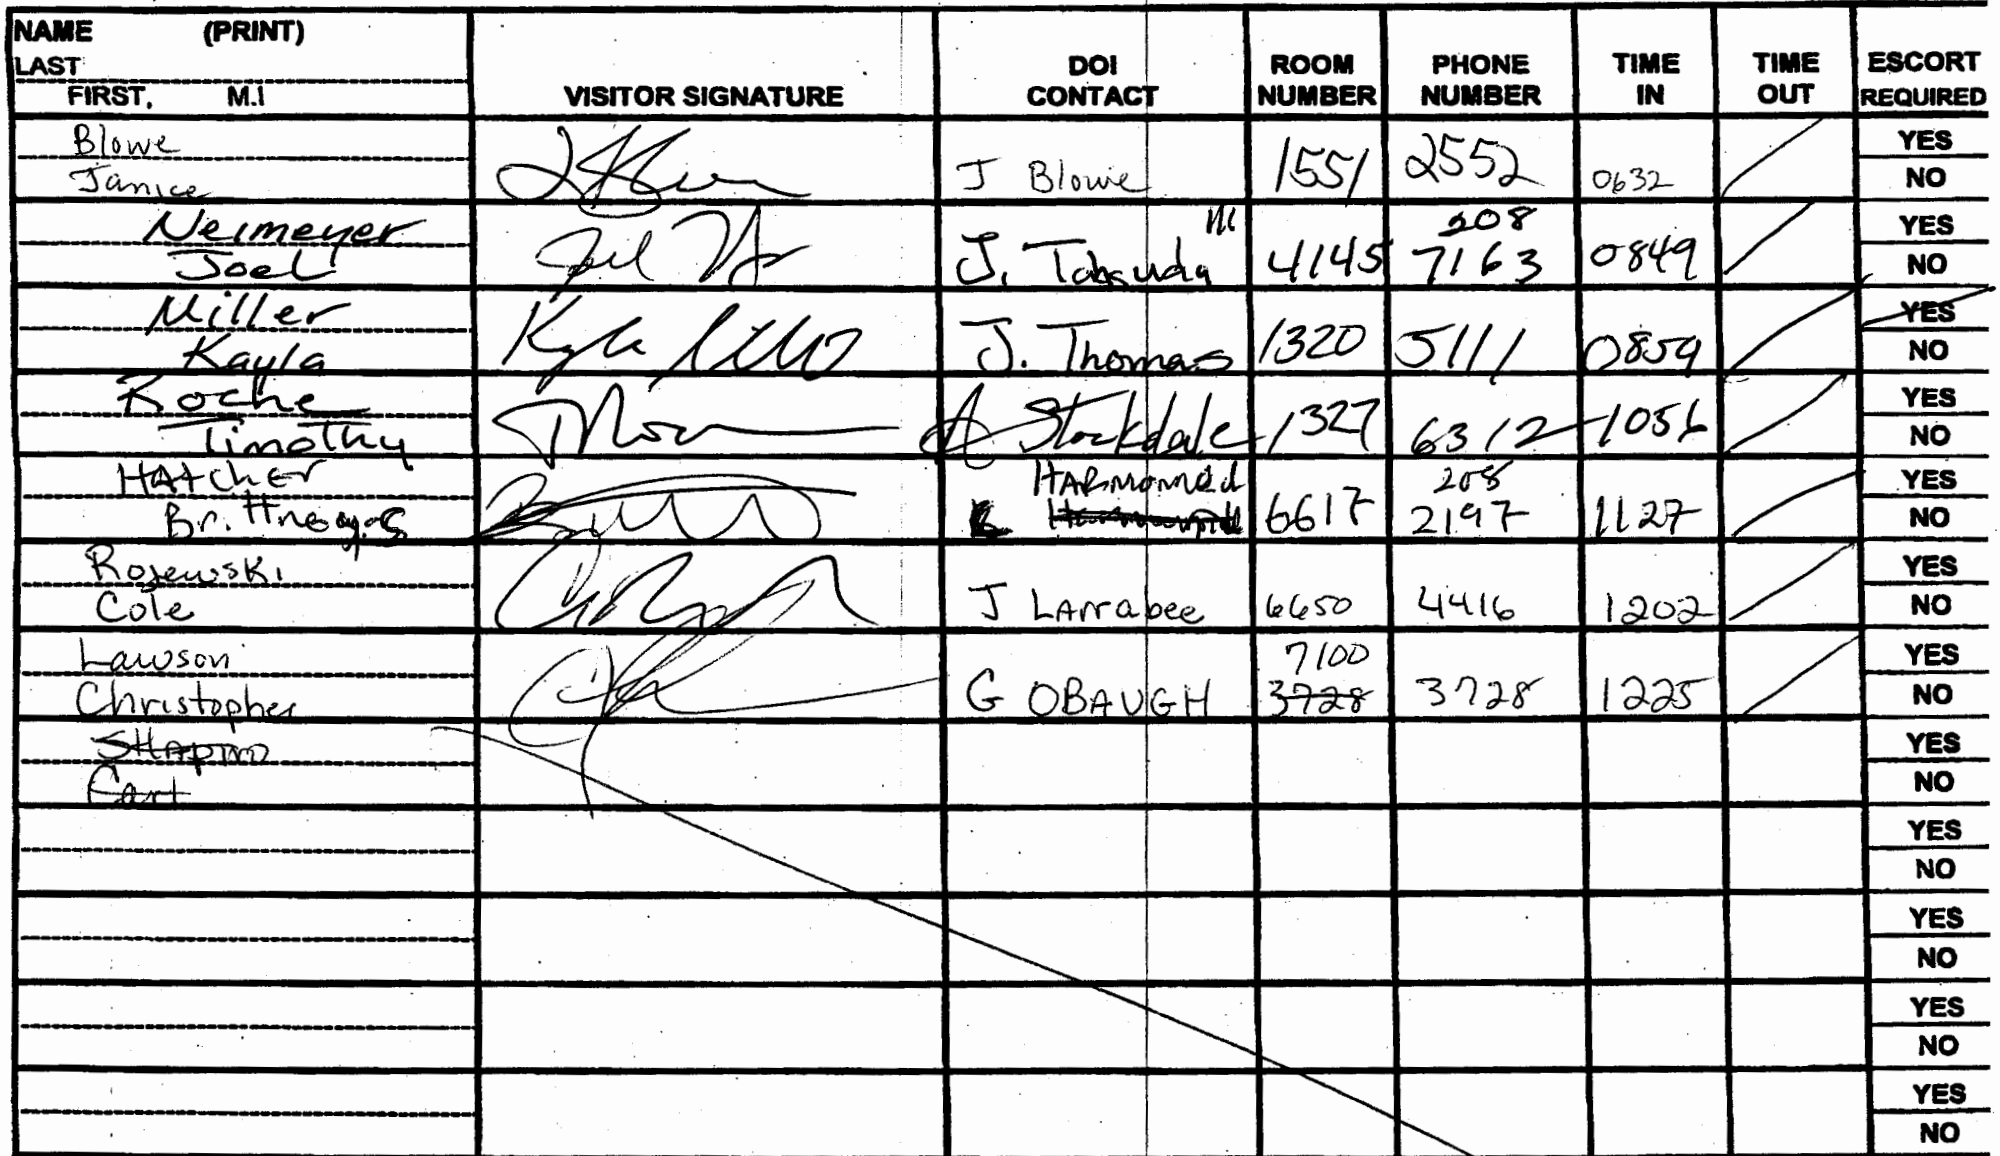 NAME (PRINT)
LAST
FIRST, M.I
VISITOR SIGNATURE
DOI CONTACT
ROOM NUMBER
PHONE NUMBER
TIME IN
TIME OUT
ESCORT REQUIRED
Blowe
Janice
J Blowe 1551 2552 0632
YES
NO
Neimeyer
Joel
J. 4145 208 7163 0849
YES
NO
Miller
Kayla
J. Thomas 1320 5111 0859
YES
NO
Roche
Timothy
A Stockdale 1327 6312
YES
NO
Hatcher
6617 208 2197 1127
YES
NO
Rojewski
Cole
J Larrabee 6650 4416 1202
YES
NO
Lawson
Christopher
G OBAUGH 7100 3728 3728 1225
YES
NO
SHApiro
YES
NO
YES
NO
YES
NO
YES
NO
YES
NO